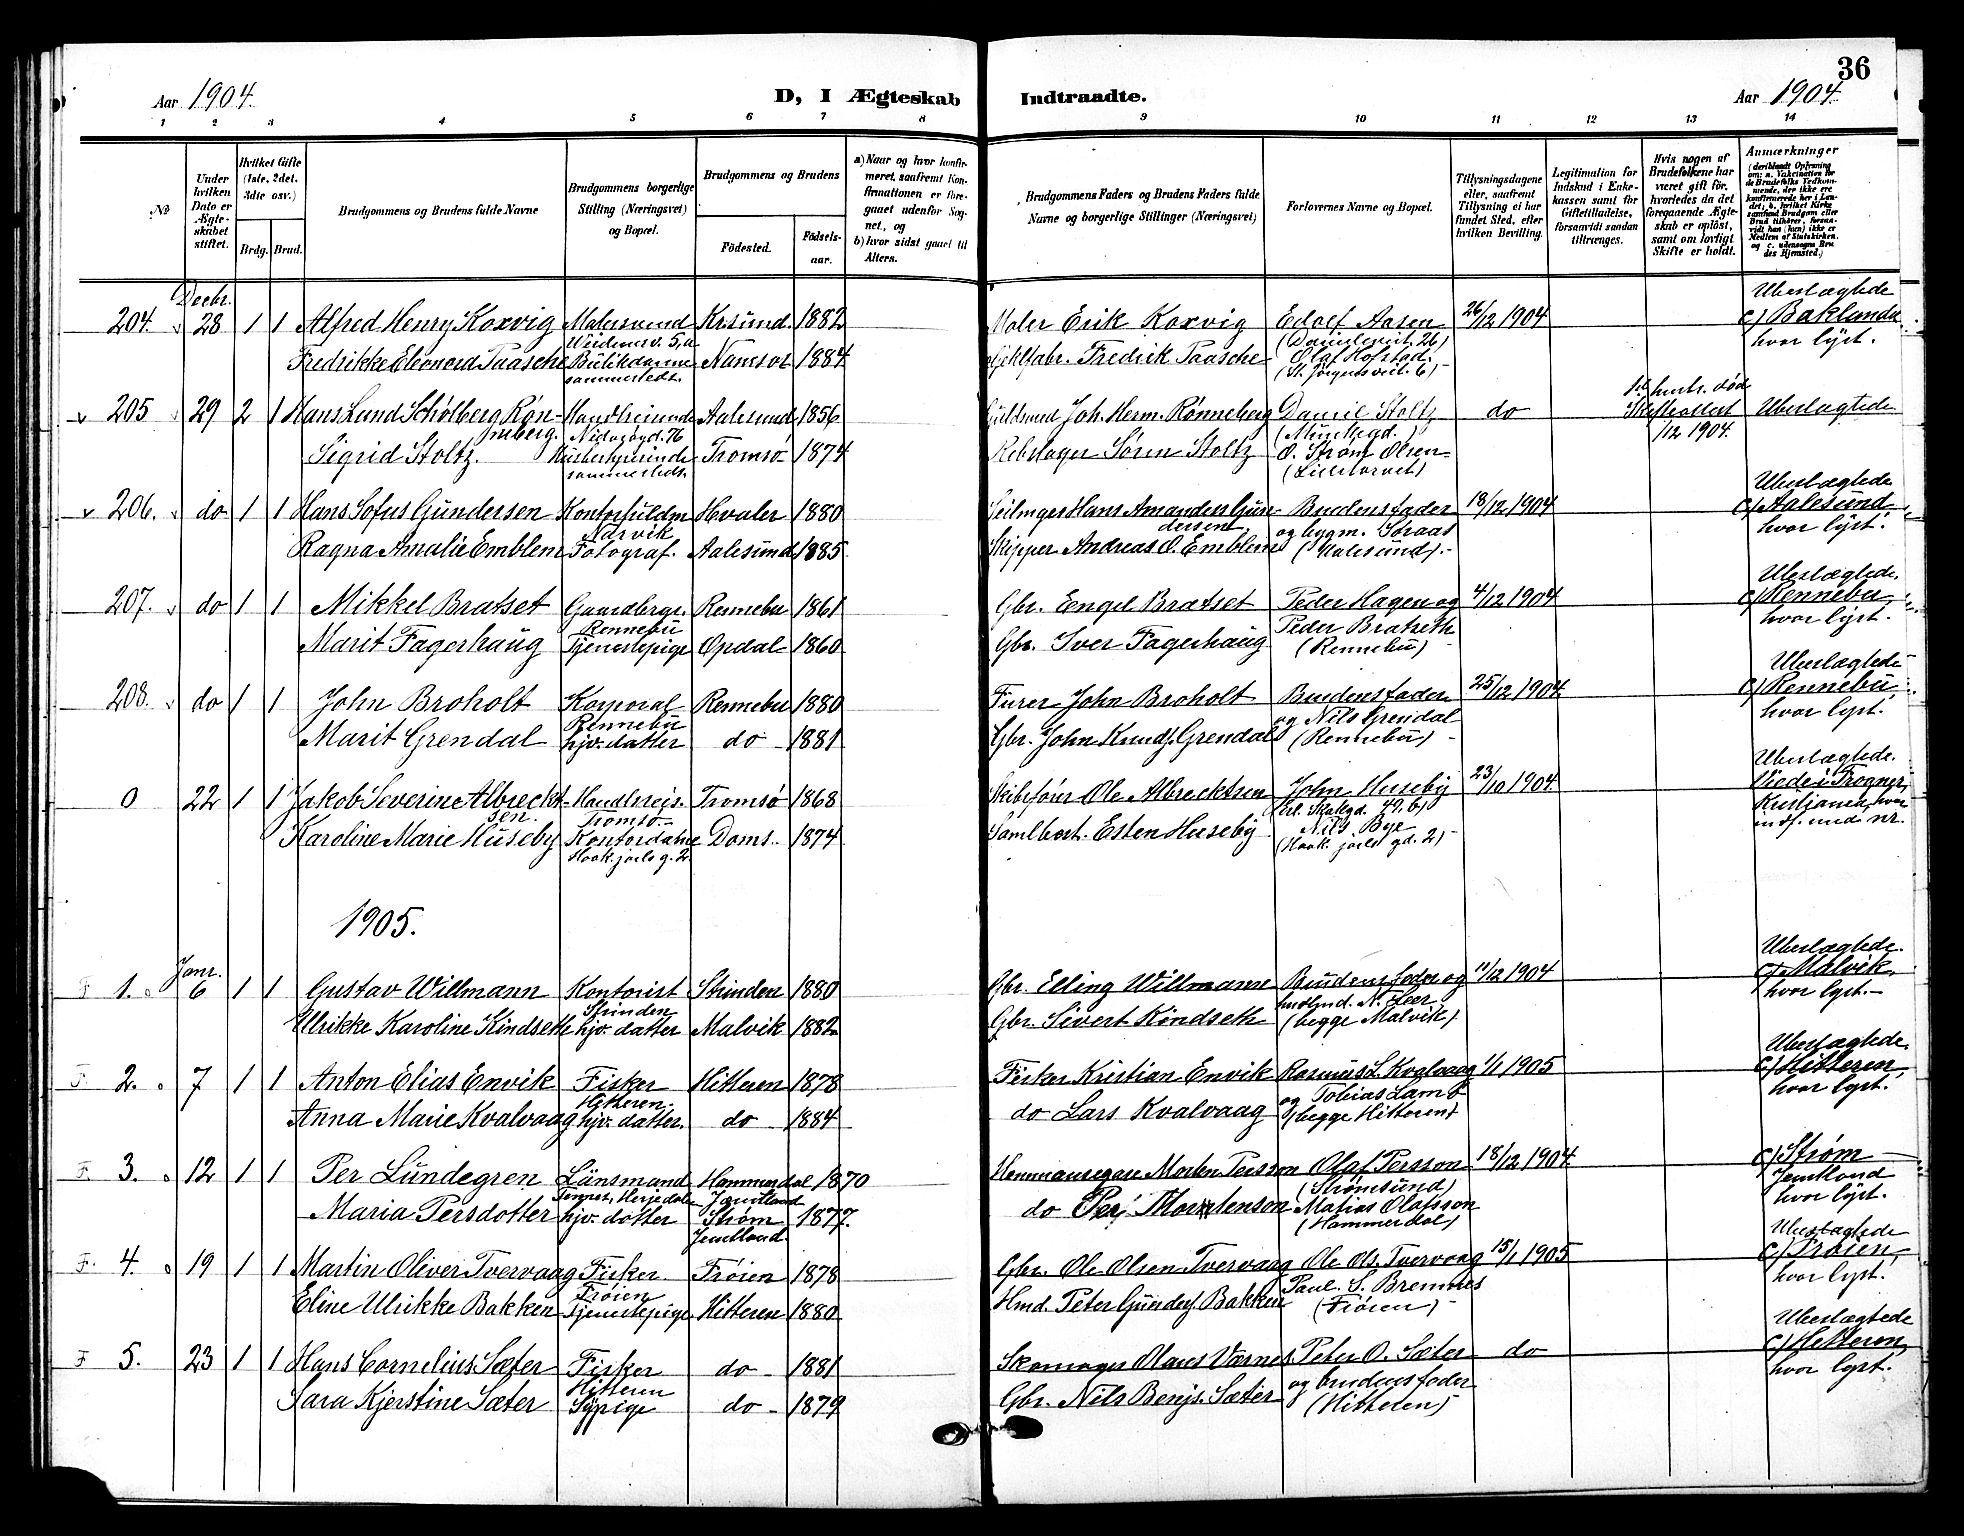 36
Aar 1904.
D, I Ægteskab Indtraadte.
Aar 1904.
1 2 3 4 5 6 7 8 9 10 11 12 13 14
No
Under hvilken Dato er Ægteskabet stiftet.
Hvilket Gifte (1ste, 2det, 3die osv.)
Brdg. Brud.
Brudgommens og Brudens fulde Navne
Brudgommens borgerlige Stilling (Næringsvei) og Bopæl.
Brudgommens og Brudens
Fødested.
Fødselsaar.
a) Naar og hvor konfirmeret, saafremt Konfirmationen er foregaaet udenfor Sognet, og
b) hvor sidst gaaet til Alters.
Brudgommens Faders og Brudens Faders fulde Navne og borgerlige Stillinger (Næringsvei)
Forlovernes Navne og Bopæl.
Tillysningsdagene eller, saafremt Tillysning ei har fundet Sted, efter hvilken Bevilling.
Legitimation for Indskud i Enkekassen samt for Giftetilladelse, forsaavidt saadan tiltrænges.
Hvis nogen af Brudefolkene har været gift før, hvorledes da det foregaaende Ægteskab er opløst, samt om lovligt Skifte er holdt.
Anmærkninger
(deriblandt Oplysning om: a. Vakcination for de Brudefolks Vedkommende, der ikke ere konfirmerede her i Landet; b. hvilket Kirkesamfund Brudgom eller Brud tilhører, forsaavidt han (hun) ikke er Medlem af Statskirken, og c. udensogns Brudes Hjemsted.)
Decbr.
204. 28 1 1 Alfred Henry Koxvig Malersvend Kr.sund 1882 Maler Erik Koxvig Edolf Aasen 26/12 1904 Uberslægtede
c) Baklandet
hvor lyst.
Fredrikke Eleonora Paasche Butikdame Namsos 1884 Fredrik Paasche Olaf Hofstad.
sammesteds.
205 29 2 1 Hans Lund Schølberg Rønneberg. Aalesund 1856 Joh. Herm. Rønneberg Daniel Stoltz do Uberslægtede
/12 1904.
Sigrid Stoltz. sammesteds. Tromsø 1874 Rebslager Søren Stoltz O. Strøm Olsen
(Lilletorvet)
206. do 1 1 Hans Sofus Gundersen Hvaler 1880 Hans Amander Gundersen Brudens fader 18/12 1904 Uberslægtede
c) Aalesund
hvor lyst.
Narvik
Ragna Amalie Emblem Fotograf. Aalesund 1885 Skipper Andreas O. Emblem (Aalesund).
207. do 1 1 Mikkel Bratset Gaardbrgr. Rennebu 1861 Gbr. Engel Bratset Peder Hagen og 4/12 1904 Uberslægtede.
c) Rennebu,
hvor lyst.
Rennebu
Marit Fagerhaug Tjenestepige Opdal 1860 Gbr. Iver Fagerhaug Peder Bratseth
(Rennebu)
208. do 1 1 John Broholt Korporal Rennebu 1880 Furer John Broholt Brudens fader 25/12 1904 Uberslægtede
c) Rennebu
hvor lyst.
Rennebu
Marit Grendal hjv. datter do 1881 Gbr. John Knuds. Grendal og Nils Grendal
(Rennebu)
0 22 1 1 Jakob Severine Albrecktsen. Handlsreis. Tromsø 1868 Skibsfører Ole Albrecktsen John Huseby 23/10 1904 Uberslægtede.
Viede i Frogner,
Kristiania, hvor
indf. und nr.
Tromsø
Karoline Marie Huseby Kontordame Doms. 1874 Esten Huseby Nils Bye
1905.
Janr.
F 1. 6 1 1 Gustav Willmann Kontorist Strinden 1880 Gbr. Elling Willmann Brudens fader og 11/12 1904 Uberslægtede.
c) Malvik,
hvor lyst.
Strinden
Ulrikke Karoline Kindseth hjv. datter Malvik 1882 Gbr. Sivert Kindseth (begge Malvik)
F 2. 7 1 1 Anton Elias Envik Fisker Hitteren 1878 Fisker Kristian Envik Rasmus L. Kvalvaag 1/1 1905 Uberslægtede.
c) Hitteren,
hvor lyst.
Hitteren.
Anna Marie Kvalvaag hjv. datter. do 1884 do Lars Kvalvaag og Tobias Lamo
(begge Hitteren)
F 3. 12 1 1 Per Lundegren Länsmand Hammerdal 1870 Hemmansegare Morten Persson Olaf Persson 18/12 1904 c) Strøm
Jemtland
hvor lyst.
Jemtland
(Strømsund)
Maria Persdotter hjv. datter Strøm 1877. do Per Mortensen Matias Olafsson
Jemtland. (Hammerdal)
F. 4. 19 1 1 Martin Oliver Tvervaag Fisker Frøien 1878 Gbr. Ole Olsen Tvervaag Ole Ols. Tvervaag 15/1 1905 Uberslægtede
c) Frøien,
hvor lyst.
Frøien
Eline Ulrikke Bakken Tjenestepige Hitteren 1880 Hmd. Peter Gunders. Bakken Paul. S. Bremnes
(Frøien)
F 5. 23 1 1 Hans Cornelius Sæter Fisker do 1881 Skomager Olaus Værnes Peter O. Sæter do Uberslægtede
c) Hitteren
hvor lyst.
Hitteren
Sara Kjerstine Sæter Sypige do 1879 Gbr. Nils Benj. Sæter og brudens fader
(Hitteren)